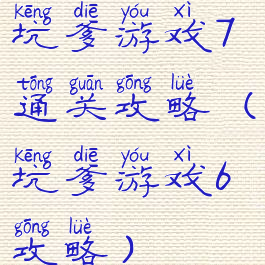 kēng diē yóu xì
坑爹游戏7
tōng guān gōng lüè
通关攻略（
kēng diē yóu xì
坑爹游戏6
gōng lüè
攻略）